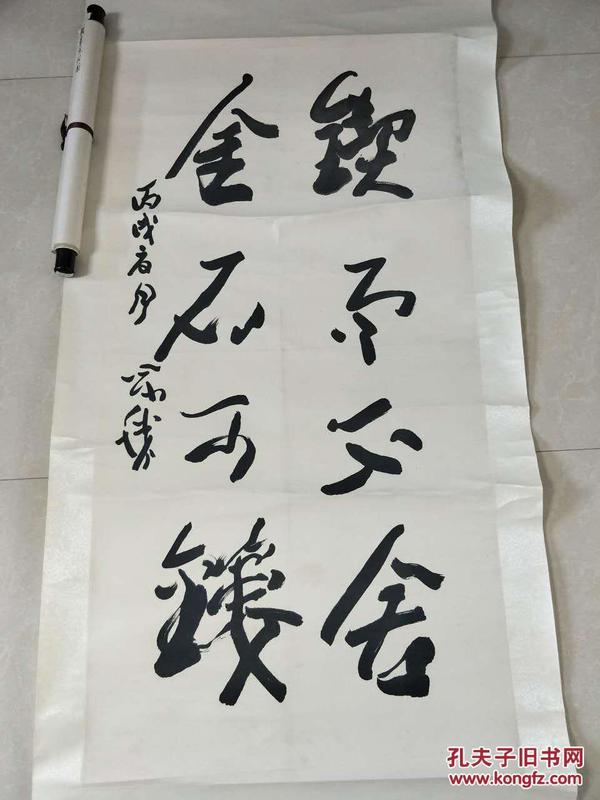 鍥而不舍
金石可鏤
丙戌春月
孔夫子旧书网
www.kongfz.com